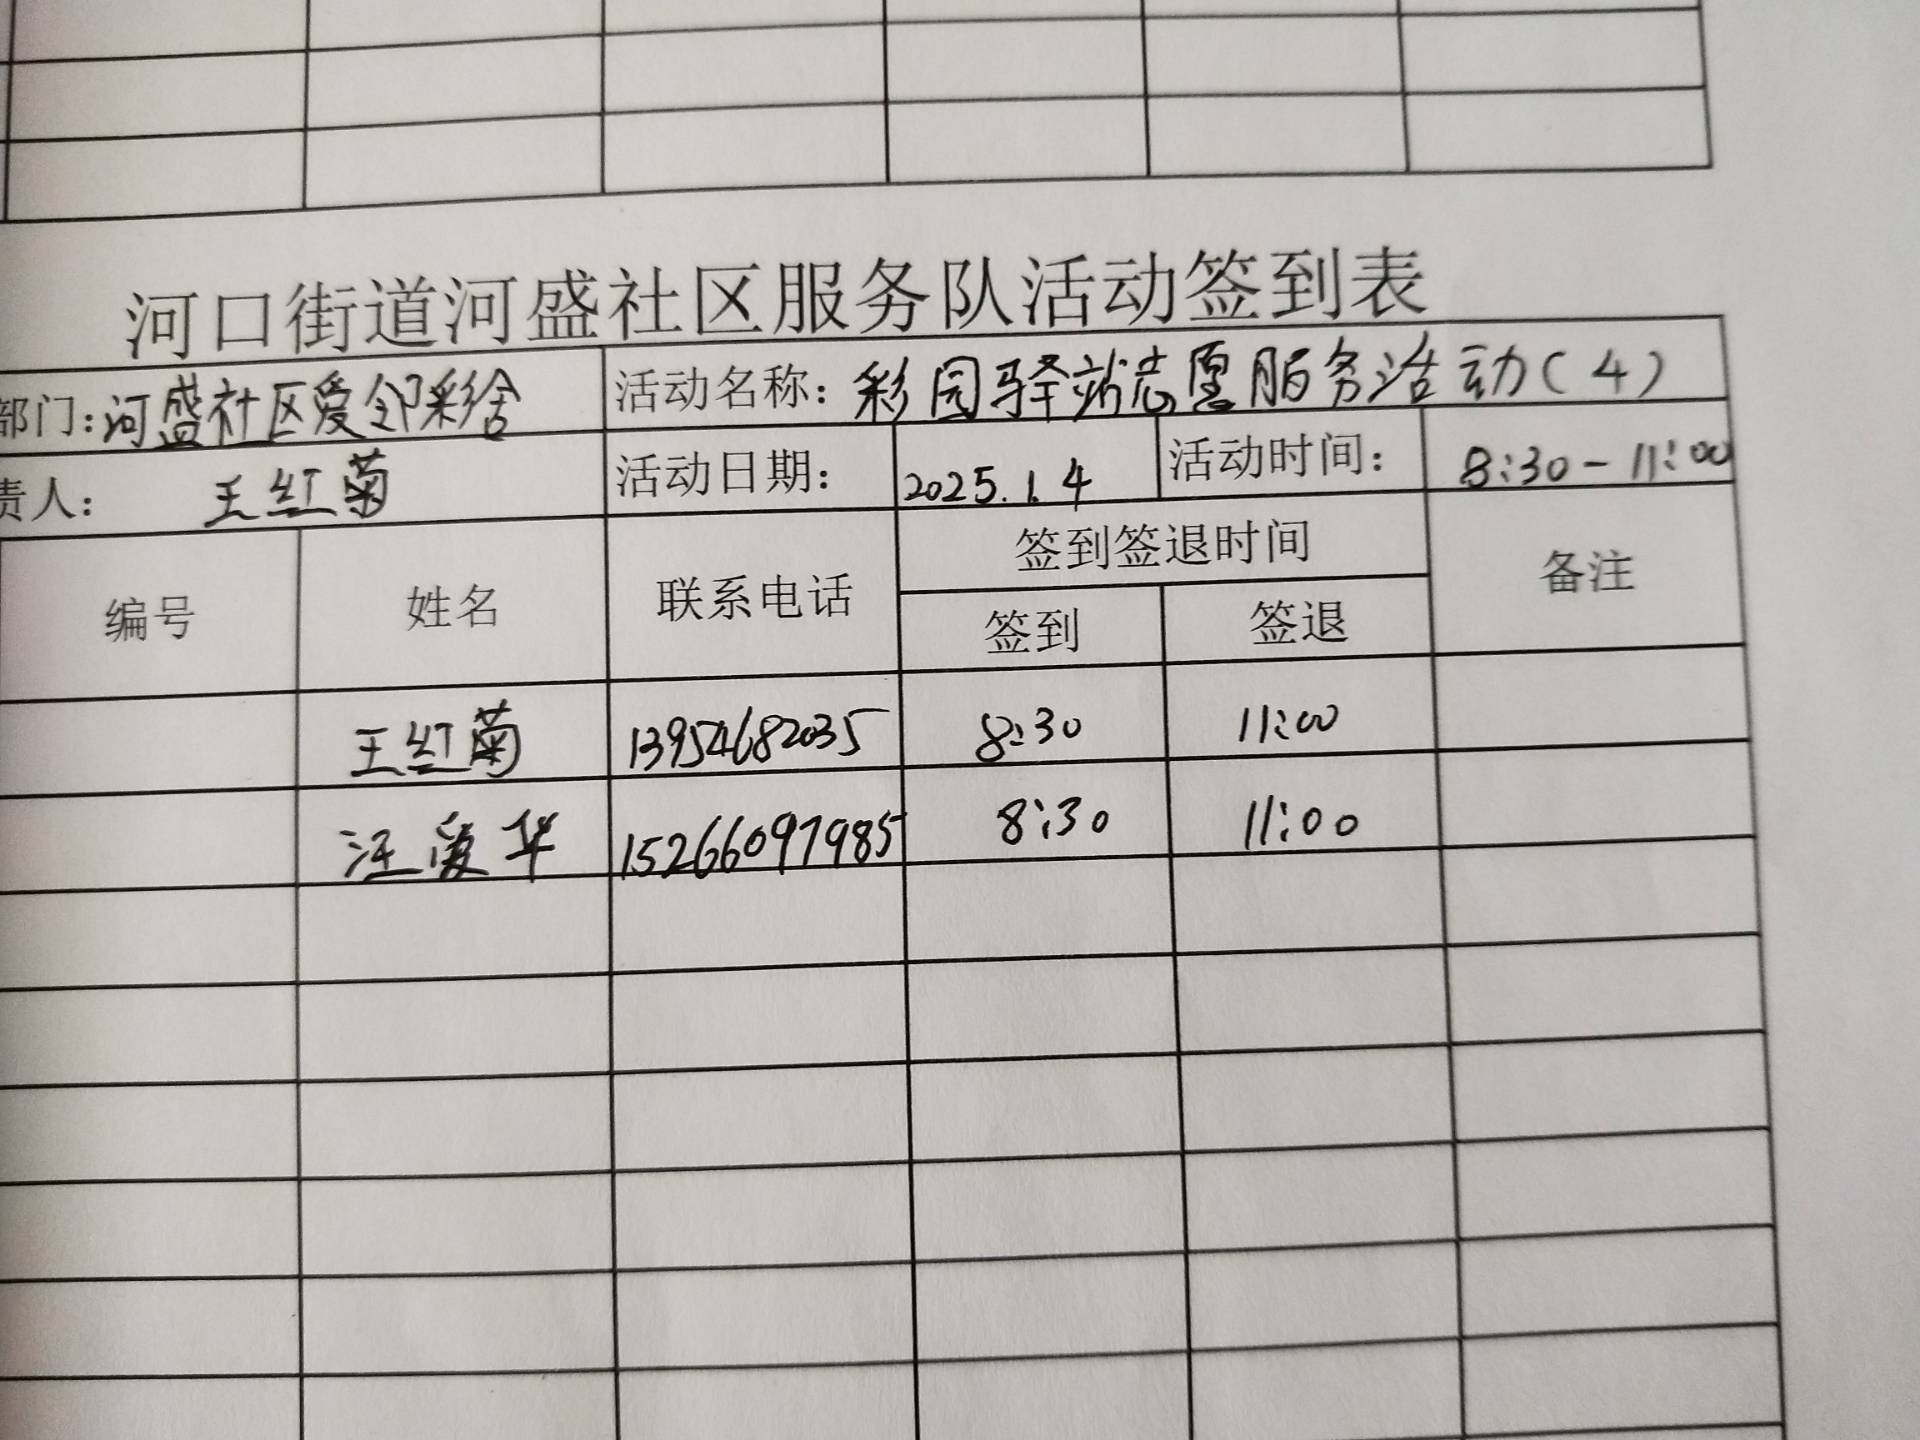 河口街道河盛社区服务队活动签到表
部门:河盛社区爱邻彩舍 活动名称:彩园驿站志愿服务活动(4)
责人: 王红菊 活动日期: 2025.1.4 活动时间: 8:30-11:00
编号 姓名 联系电话 签到签退时间 备注
签到 签退
王红菊 13954682035 8:30 11:00
汪爱华 15266097985 8:30 11:00